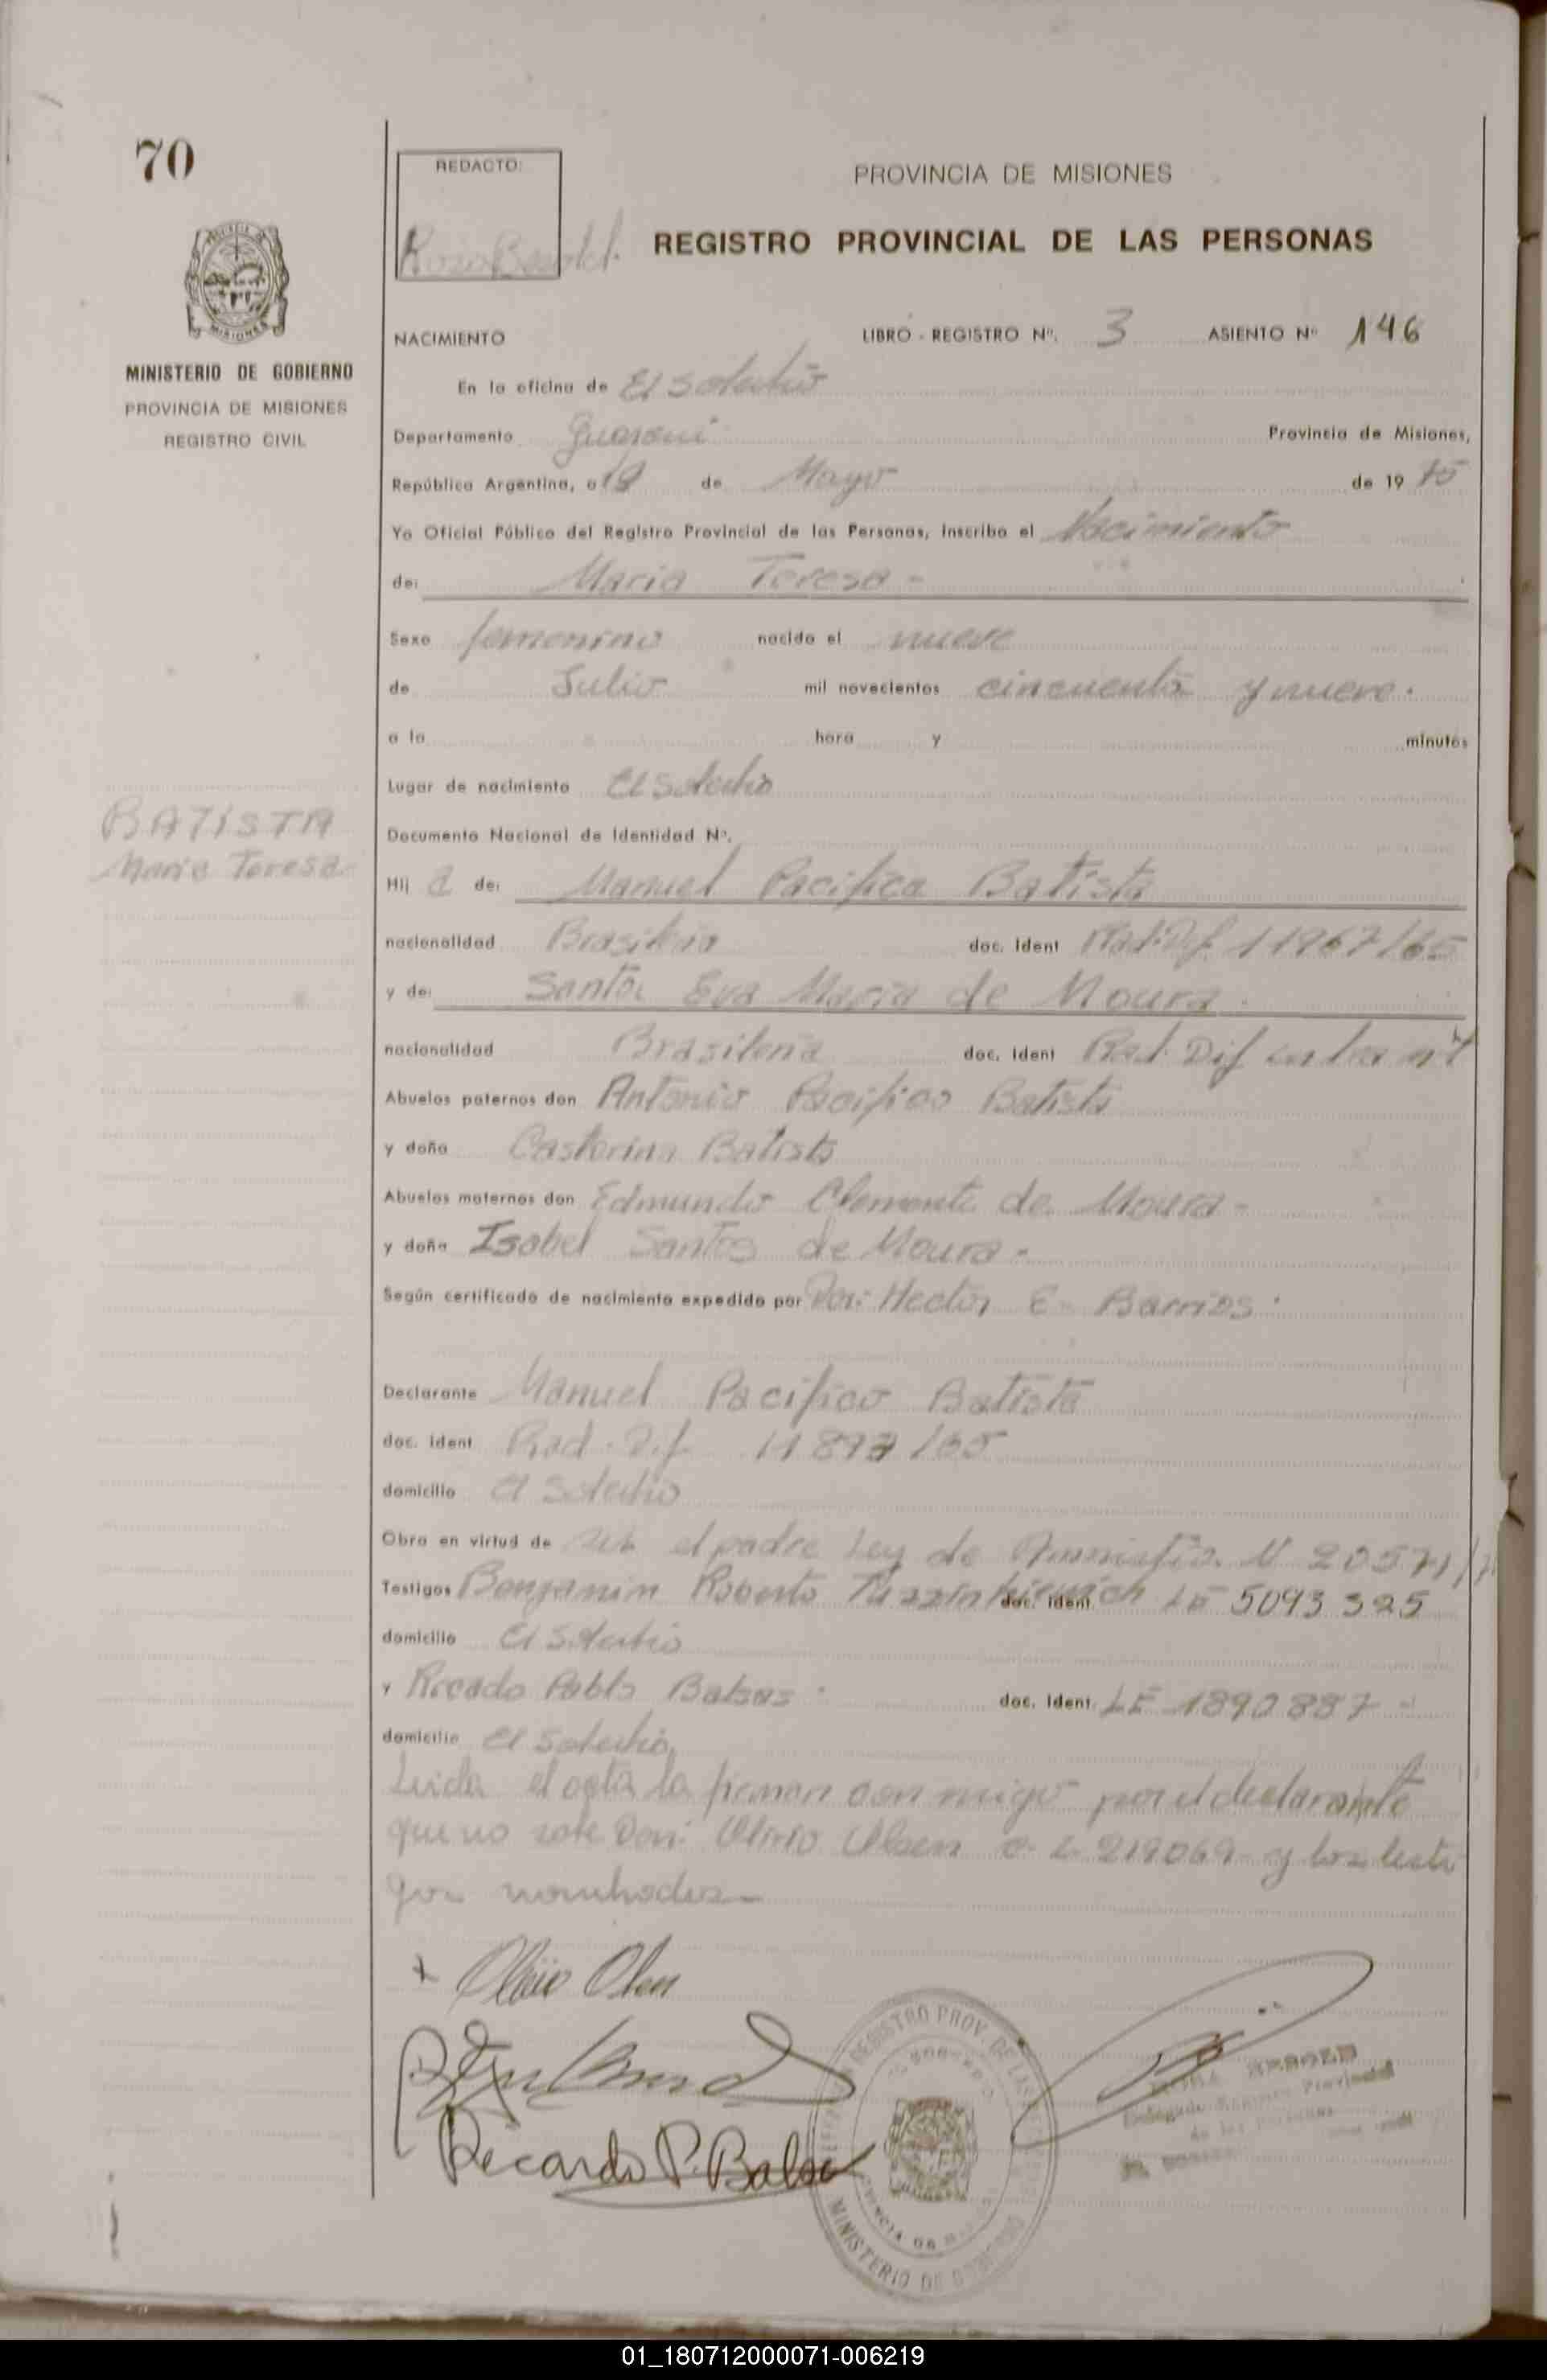 70
REDACTO:
PROVINCIA DE MISIONES
REGISTRO PROVINCIAL DE LAS PERSONAS
MISIONES
MINISTERIO DE GOBIERNO
PROVINCIA DE MISIONES
REGISTRO CIVIL
NACIMIENTO LIBRO - REGISTRO Nº. 3 ASIENTO Nº 146
En la oficina de El Soberbio
Departamento Guarani Provincia de Misiones,
República Argentina, a 19 de Mayo de 19 75
Yo Oficial Público del Registro Provincial de las Personas, inscribo el Nacimiento
de: Maria Teresa -
Sexo femenino nacido el nueve
de Julio mil novecientos cincuenta y nueve.
a la hora y minutos
Lugar de nacimiento El Soberbio
BATISTA
Maria Teresa
Documento Nacional de Identidad Nº.
Hij a de: Manuel Pacifico Batista
nacionalidad Brasileña doc. ident Rad. Dif. 11967/65
y de: Santa Eva Maria de Moura.
nacionalidad Brasilena doc. ident Rad. Dif
Abuelos paternos don Antonio Pacifico Batista
y doña Castorina Batista
Abuelos maternos don Edmundo Clemente de Moura -
y doña Isabel Santos de Moura -
Según certificado de nacimiento expedido por Don: Hector E. Barrios.
Declarante Manuel Pacifico Batista
doc. ident Rad. Dif. 11897/65
domicilio El Soberbio
Obra en virtud de ser el padre Ley de Amnistía. N 20571/
Testigos Benjamin Roberto doc. ident. LE 5093 325
domicilio El Soberbio
y Ricado Pablo Balsas. doc. ident. LE 1890887 -
domicilio El Soberbio,
Leida el acta la firman con migo por el declarante
que no sabe Don: Olivio Olsen C. I. 219069 y los testi
gos nombrados -
+ Olivio Olsen
Ricardo P. Balsa
REGISTRO PROV. DE LAS
MINISTERIO DE GOBIERNO
01_180712000071-006219